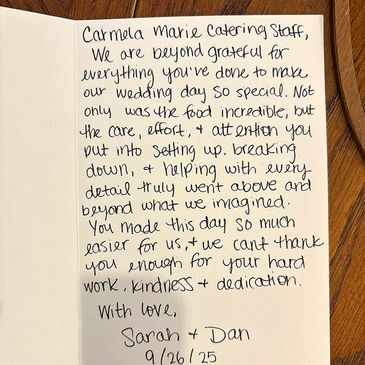 Carmela Marie Catering Staff,
We are beyond grateful for
everything you've done to make
our wedding day so special. Not
only was the food incredible, but
the care, effort, + attention you
put into setting up, breaking
down, + helping with every
detail truly went above and
beyond what we imagined.
You made this day so much
easier for us, + we cant thank
you enough for your hard
work, kindness + dedication.
With love,
Sarah + Dan
9/26/25